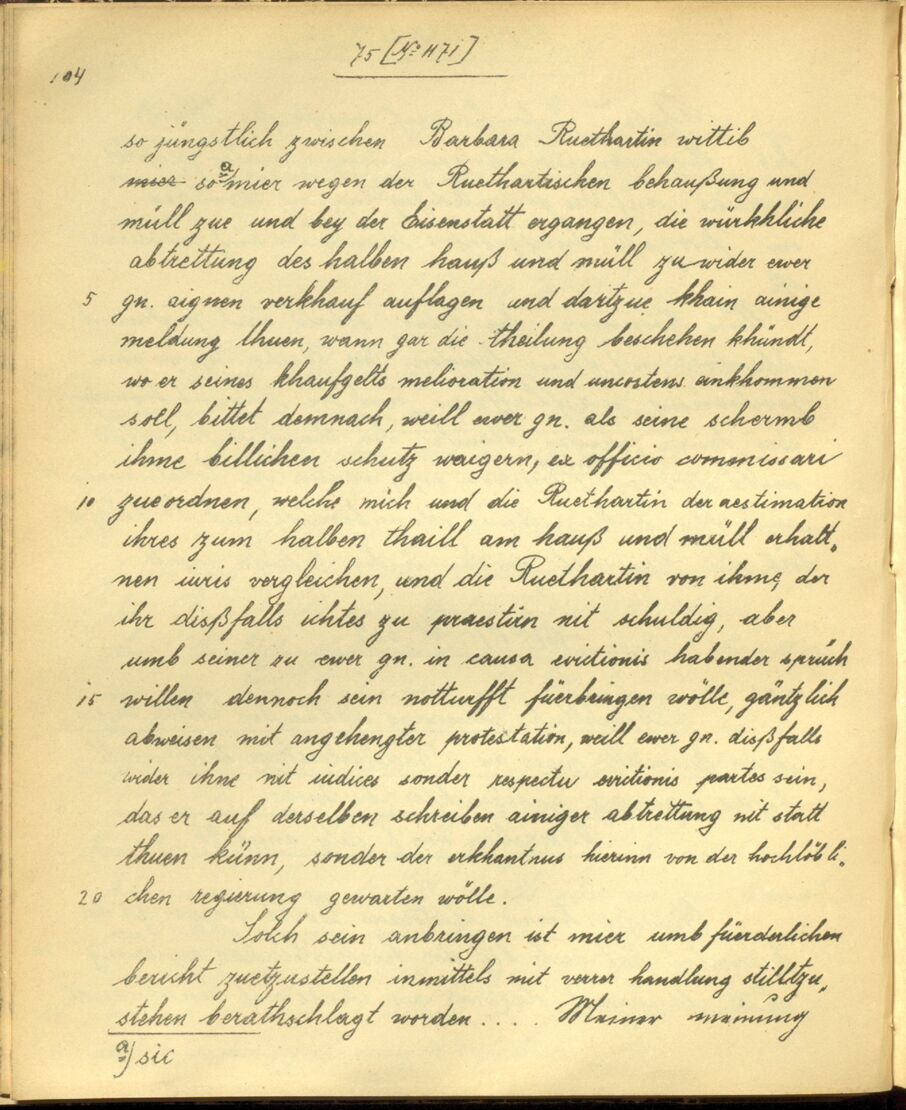 75 [No 1171]
104
so jüngstlich zwischen Barbara Ruethartin wittib
mier so a) mier wegen der Ruethartischen behaußung und
müll zue und bey der Eisenstatt ergangen, die würkhliche
abtrettung des halben hauß und müll zuwider ewer
5 gn. aignen verkhauf auflagen und dartzue khain ainige
meldung thuen, wann gar die theilung beschehen khündt,
wo er seines khaufgelts melioration und uncostens einkhommen
soll, bittet demnach, weill ewer gn. als seine schermb
ihme billichen schutz waigern, ex officio commissari
10 zueordnen, welche mich und die Ruethartin der aestimation
ihres zum halben thaill am hauß und müll erhalt„
nen iuris vergleichen, und die Ruethartin von ihme, der
ihr dißfalls ichtes zu praestirn nit schuldig, aber
umb seiner zu ewer gn. in causa evictionis habender sprüch
15 willen dennoch sein notturfft füerbringen wölle, gäntzlich
abweisen mit angehengter protestation, weill ewer gn. dißfalls
wider ihne nit iudices sonder respectu evictionis partes sein,
das er auf derselben schreiben ainiger abtrettung nit statt
thuen künn, sonder der erkhantnus hierinn von der hochlöbli„
20 chen regierung gewarten wölle.
Solch sein anbringen ist mier umb füerderlichen
bericht zuetzustellen inmittels mit verrer handlung stilltzu„
stehen berathschlagt worden.... Meiner meinung
a) sic